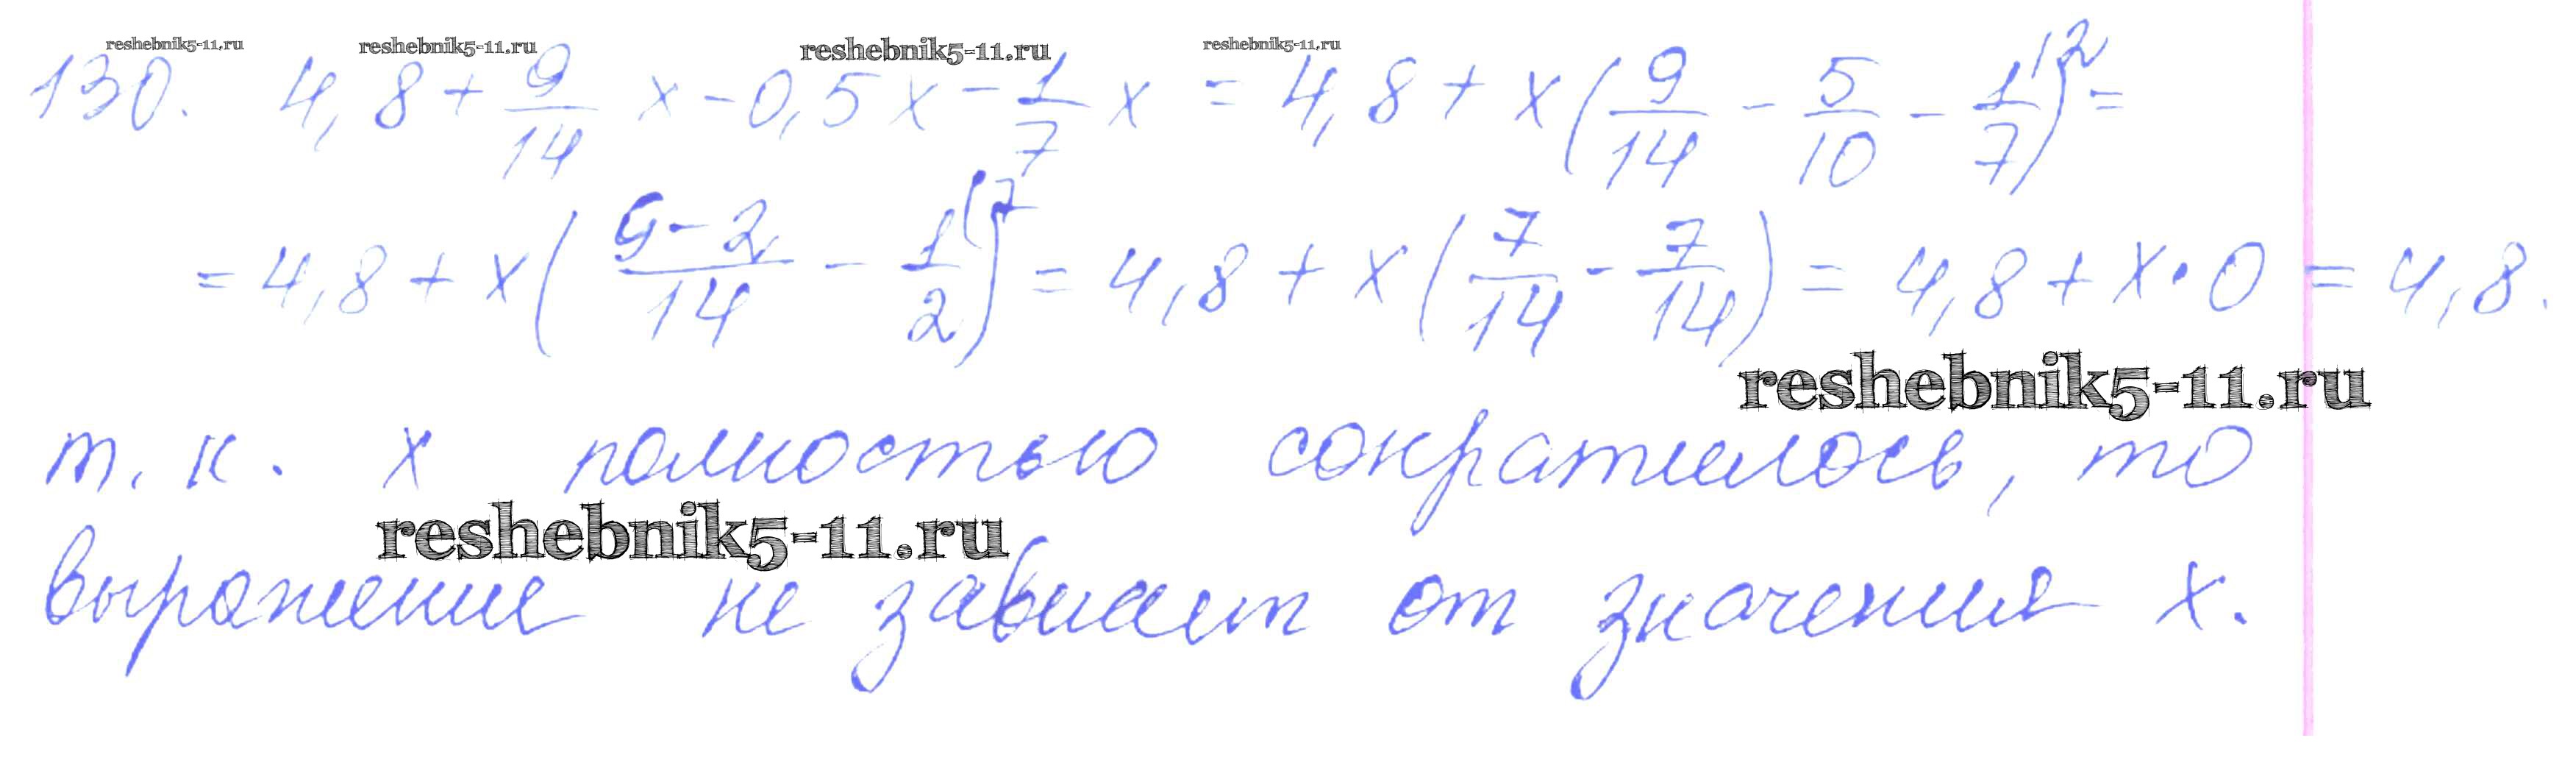 reshebnik5-11.ru reshebnik5-11.ru reshebnik5-11.ru reshebnik5-11.ru
130. 4,8 + 9/14 x - 0,5x - 1/7 x = 4,8 + x(9/14 - 5/10 - 1/7^(2) =
= 4,8 + x(9-2/14 - 1/2^(7) = 4,8 + x(7/14 - 7/14) = 4,8 + x · 0 = 4,8.
reshebnik5-11.ru
т.к. x полностью сократилось, то
reshebnik5-11.ru
выражение не зависит от значения x.